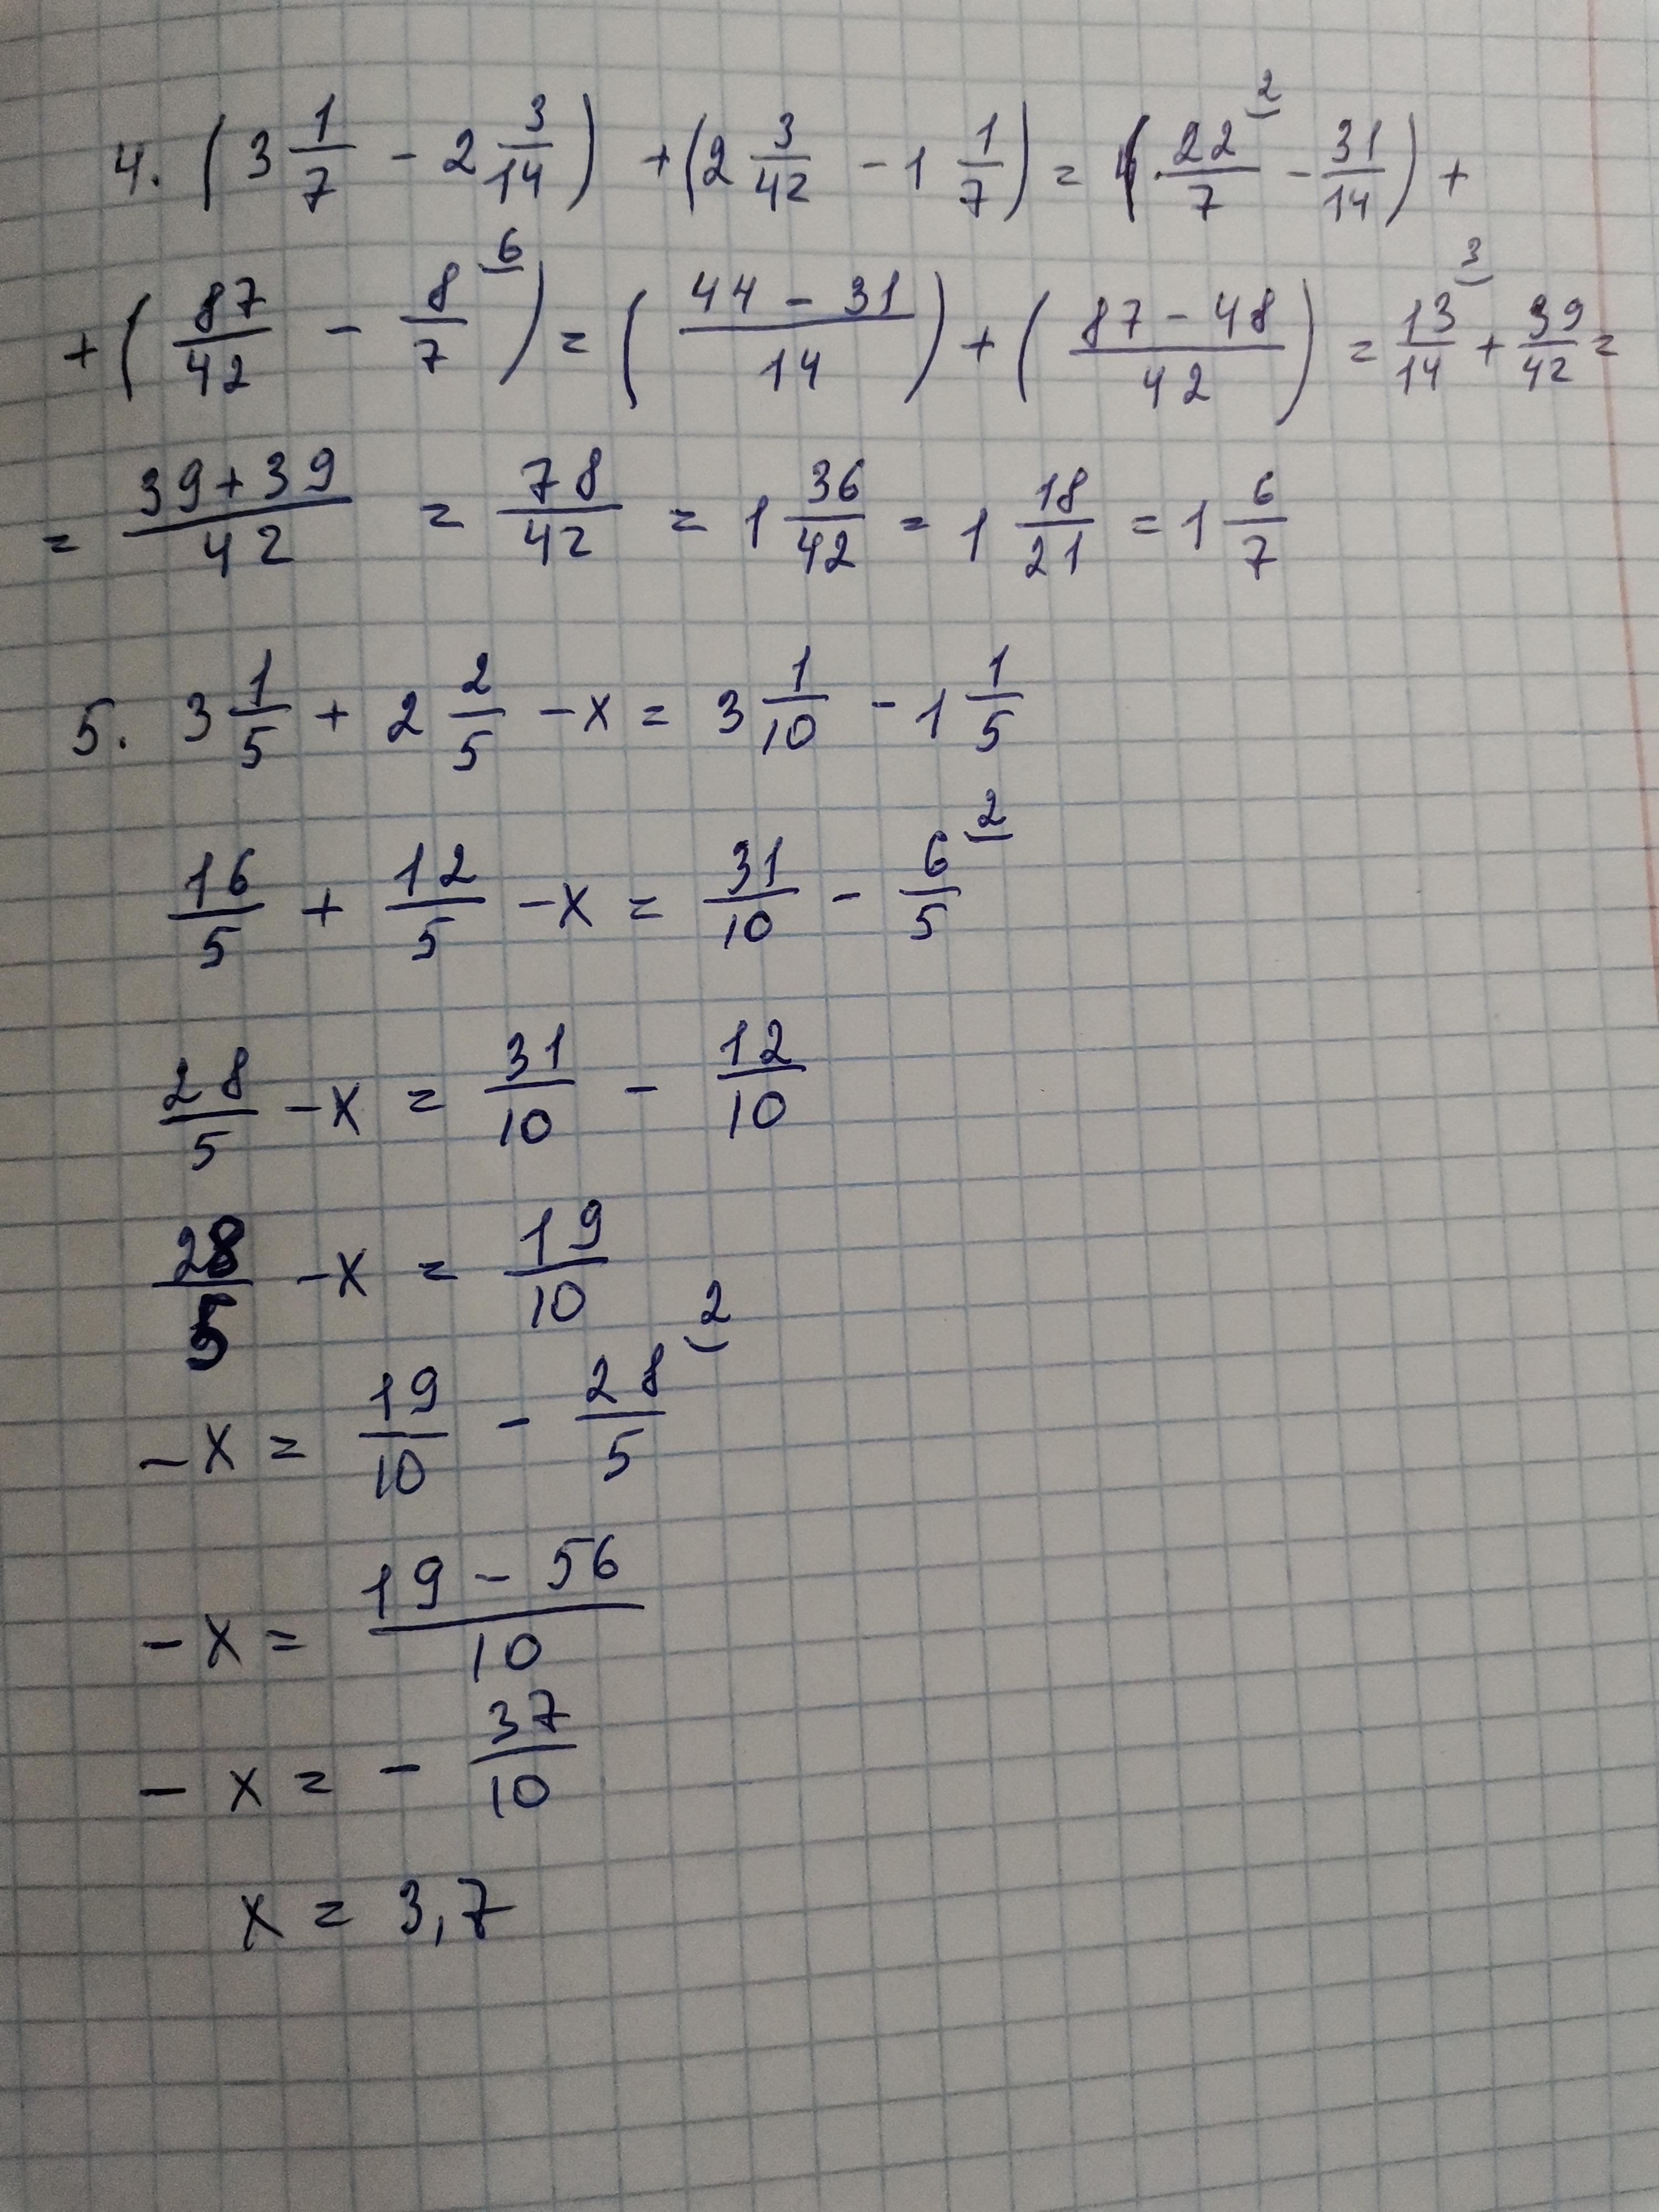 4. (3 1/7 - 2 3/14) + (2 3/42 - 1 1/7) = (22/7 ² - 31/14) +
+ (87/42 - 8/7 ⁶) = (44 - 31/14) + (87 - 48/42) = 13/14 ³ + 39/42 =
= 39 + 39/42 = 78/42 = 1 36/42 = 1 18/21 = 1 6/7
5. 3 1/5 + 2 2/5 - x = 3 1/10 - 1 1/5
16/5 + 12/5 - x = 31/10 - 6/5 ²
28/5 - x = 31/10 - 12/10
28/5 - x = 19/10
- x = 19/10 - 28/5 ²
- x = 19 - 56/10
- x = - 37/10
x = 3,7